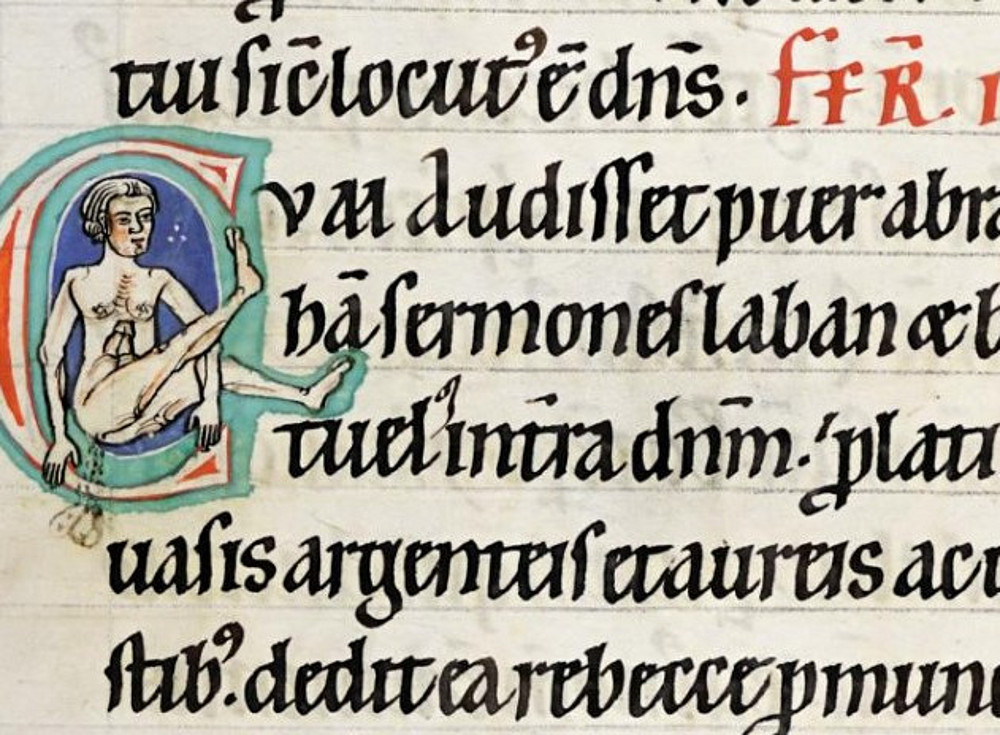 tui sic̄ locutꝰ ē dn̄s. 
CVM Audisset puer abra
hā sermones laban & b
tuelꝰ intr̄a dn̄m. ꝓlati
uasis argenteis et aureis ac u
stibꝰ. dedit ea rebecce ꝓ mune